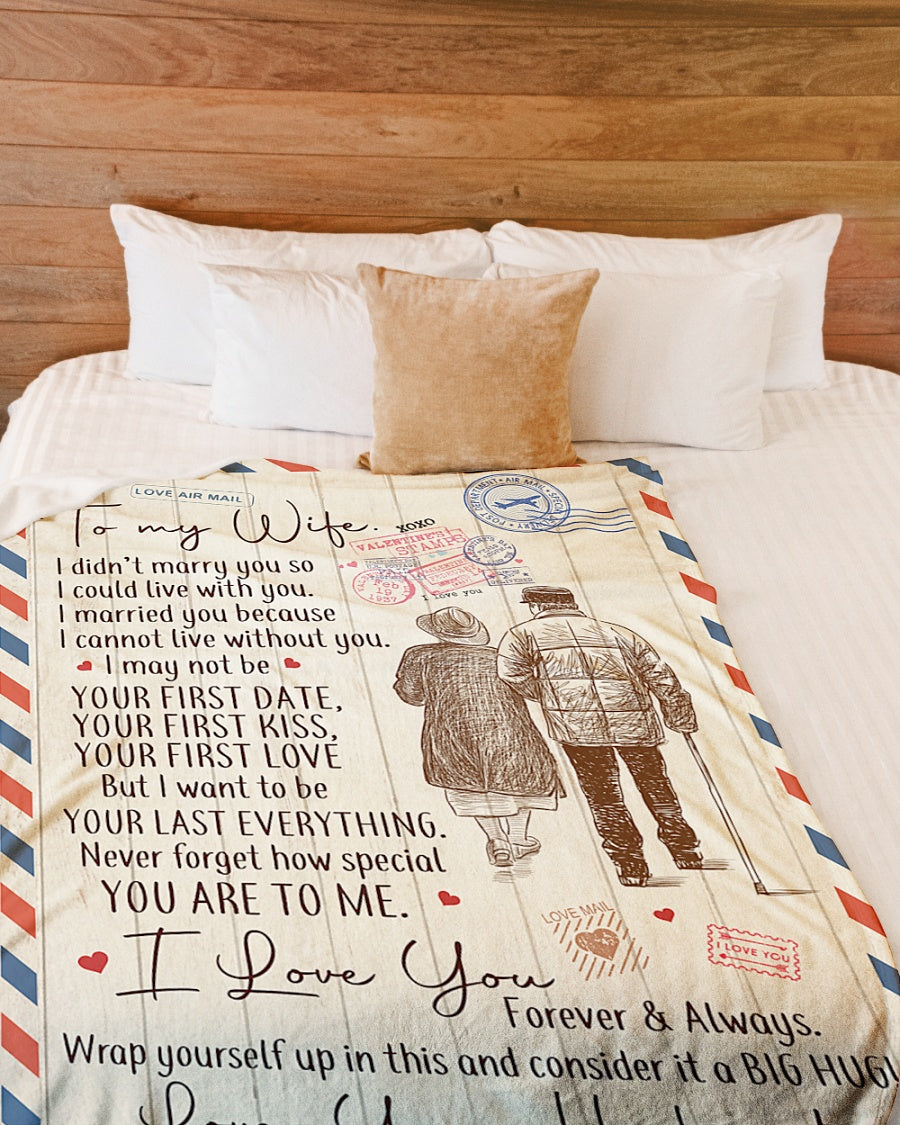 LOVE AIR MAIL
POST DEPARTMENT • AIR MAIL • SPECIAL DELIVERY
To my Wife. XOXO
VALENTINE'S
STAMPS
Feb
19
1937
I love you
I didn't marry you so
I could live with you.
I married you because
I cannot live without you.
I may not be
YOUR FIRST DATE,
YOUR FIRST KISS,
YOUR FIRST LOVE
But I want to be
YOUR LAST EVERYTHING.
Never forget how special
YOU ARE TO ME.
LOVE MAIL
I LOVE YOU
I Love You
Forever & Always.
Wrap yourself up in this and consider it a BIG HUG!